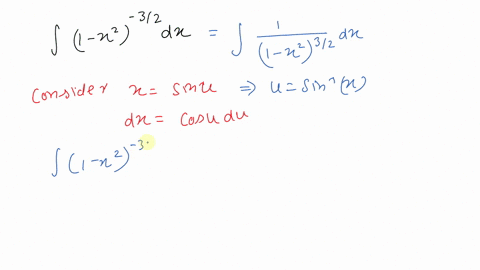 ∫ (1-x²)^{-3/2} dx = ∫ 1/(1-x²)^{3/2} dx
Consider x = sinu ⇒ u = sin⁻¹(x)
dx = cosu du
∫ (1-x²)^{-3